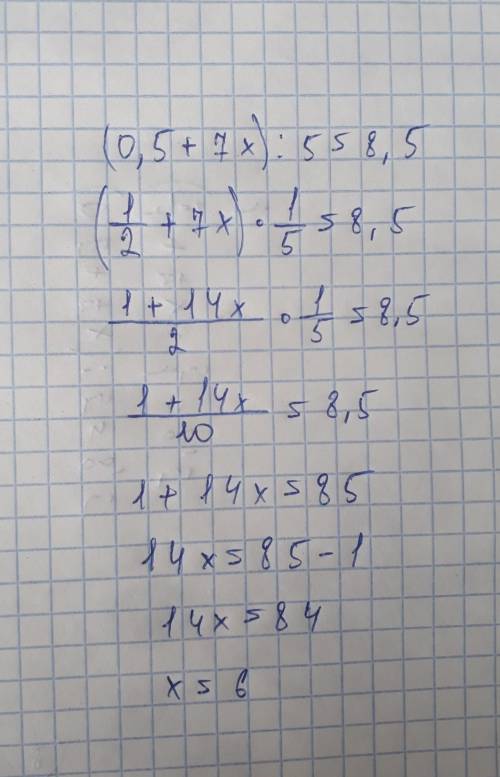 (0,5 + 7x) : 5 = 8,5
(1/2 + 7x) · 1/5 = 8,5
(1 + 14x)/2 · 1/5 = 8,5
(1 + 14x)/10 = 8,5
1 + 14x = 85
14x = 85 - 1
14x = 84
x = 6